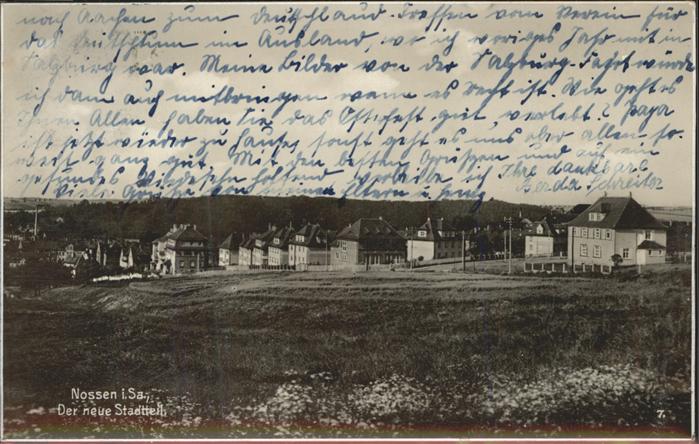 nach Aachen zum Deutschland-Treffen vom Verein für
das Deutschtum im Ausland, wo ich voriges Jahr mit in
Salzburg war. Meine Bilder von der Salzburg-Fahrt würde
ich dann auch mitbringen wenn es recht ist. Wie geht es
Ihnen Allen, haben Sie das Osterfest gut verlebt? Papa
ist jetzt wieder zu Hause, sonst geht es uns aber allen so-
weit ganz gut. Mit den besten Grüssen und auf ein
gesundes Wiedersehn hoffend verbleibe ich Ihre dankbare
Viele Grüsse von meinen Eltern u. Schreiter
Nossen i. Sa.,
Der neue Stadtteil.
7.